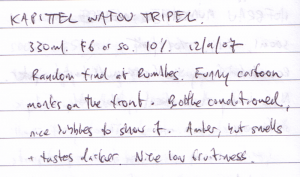 KAPITTEL WATOU TRIPEL.
330ml. F6 or so. 10%. 12/9/07
Random find at Rumbles. Funny cartoon
monks on the front. Bottle conditioned,
nice bubbles to show it. Amber, but smells
+ tastes darker. Nice low fruitiness.